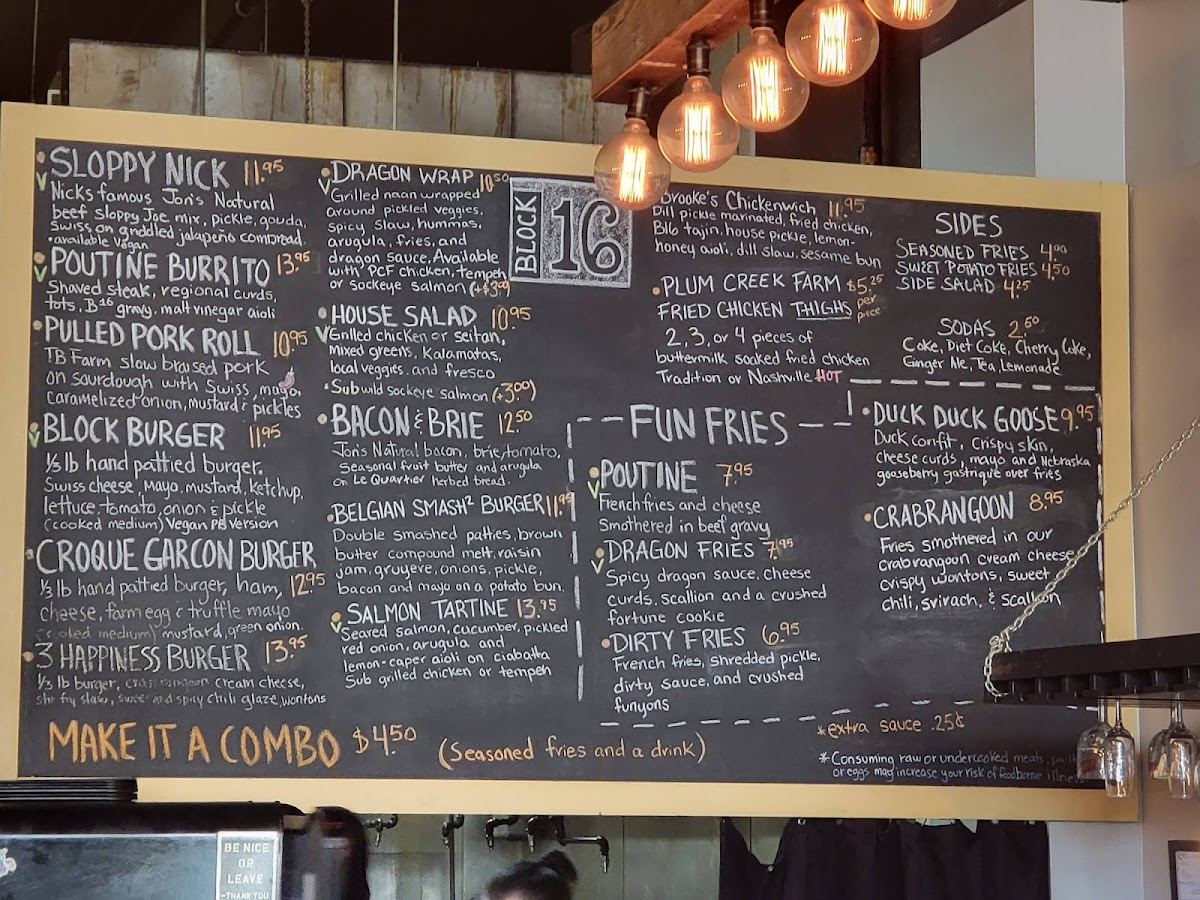 SLOPPY NICK 11.95
Nicks famous Jon's Natural
beef sloppy Joe mix, pickle, gouda,
Swiss on griddled jalapeño cornbread.
•available Vegan
POUTINE BURRITO 13.95
Shaved steak, regional curds,
tots, B16 gravy, malt vinegar aioli
PULLED PORK ROLL 10.95
TB Farm slow braised pork
on sourdough with Swiss, mayo,
caramelized onion, mustard & pickles
BLOCK BURGER 11.95
1/3 lb hand pattied burger,
Swiss cheese, Mayo, mustard, ketchup,
lettuce, tomato, onion & pickle
(cooked medium) Vegan PB Version
CROQUE GARCON BURGER
1/3 lb hand pattied burger, ham, 12.95
cheese, farm egg & truffle mayo
(cooked medium) mustard, green onion.
3 HAPPINESS BURGER 13.95
1/3 lb burger, crabrangoon cream cheese,
stir fry slaw, sweet and spicy chili glaze, wontons
DRAGON WRAP 10.50
Grilled naan wrapped
around pickled veggies,
spicy slaw, hummas,
arugula, fries, and
dragon sauce. Available
with PCF chicken, tempeh
or sockeye salmon (+$3.00)
HOUSE SALAD 10.95
Grilled chicken or seitan,
mixed greens, Kalamatas,
local veggies, and fresco
•Sub wild sockeye salmon (+3.00)
BACON & BRIE 12.50
Jon's Natural bacon, brie, tomato,
Seasonal fruit butter and arugula
on Le Quartier herbed bread.
BELGIAN SMASH² BURGER 11.95
Double smashed patties, brown
butter compound melt, raisin
jam, gruyere, onions, pickle,
bacon and mayo on a potato bun.
SALMON TARTINE 13.95
Seared salmon, cucumber, pickled
red onion, arugula and
lemon-caper aioli on ciabatta
Sub grilled chicken or tempeh
BLOCK 16
Brooke's Chickenwich 11.95
Dill pickle marinated, fried chicken,
B16 tajin, house pickle, lemon-
honey aioli, dill slaw, sesame bun
PLUM CREEK FARM $5.25
FRIED CHICKEN THIGHS per piece
2, 3, or 4 pieces of
buttermilk soaked fried chicken
Tradition or Nashville HOT
SIDES
SEASONED FRIES 4.00
SWEET POTATO FRIES 4.50
SIDE SALAD 4.25
SODAS 2.50
Coke, Diet Coke, Cherry Coke,
Ginger Ale, Tea, Lemonade
FUN FRIES
POUTINE 7.95
French fries and cheese
Smothered in beef gravy
DRAGON FRIES 7.95
Spicy dragon sauce, cheese
curds, scallion and a crushed
fortune cookie
DIRTY FRIES 6.95
French fries, shredded pickle,
dirty sauce, and crushed
funyons
DUCK DUCK GOOSE 9.95
Duck confit, crispy skin,
cheese curds, mayo and Nebraska
gooseberry gastrique over fries
CRABRANGOON 8.95
Fries smothered in our
crabrangoon cream cheese
crispy wontons, sweet
chili, svirach, & scallion
MAKE IT A COMBO $4.50 (Seasoned fries and a drink)
*extra sauce .25¢
*Consuming raw or undercooked meats,
or eggs may increase your risk of foodborne illness
BE NICE
OR
LEAVE
-THANK YOU